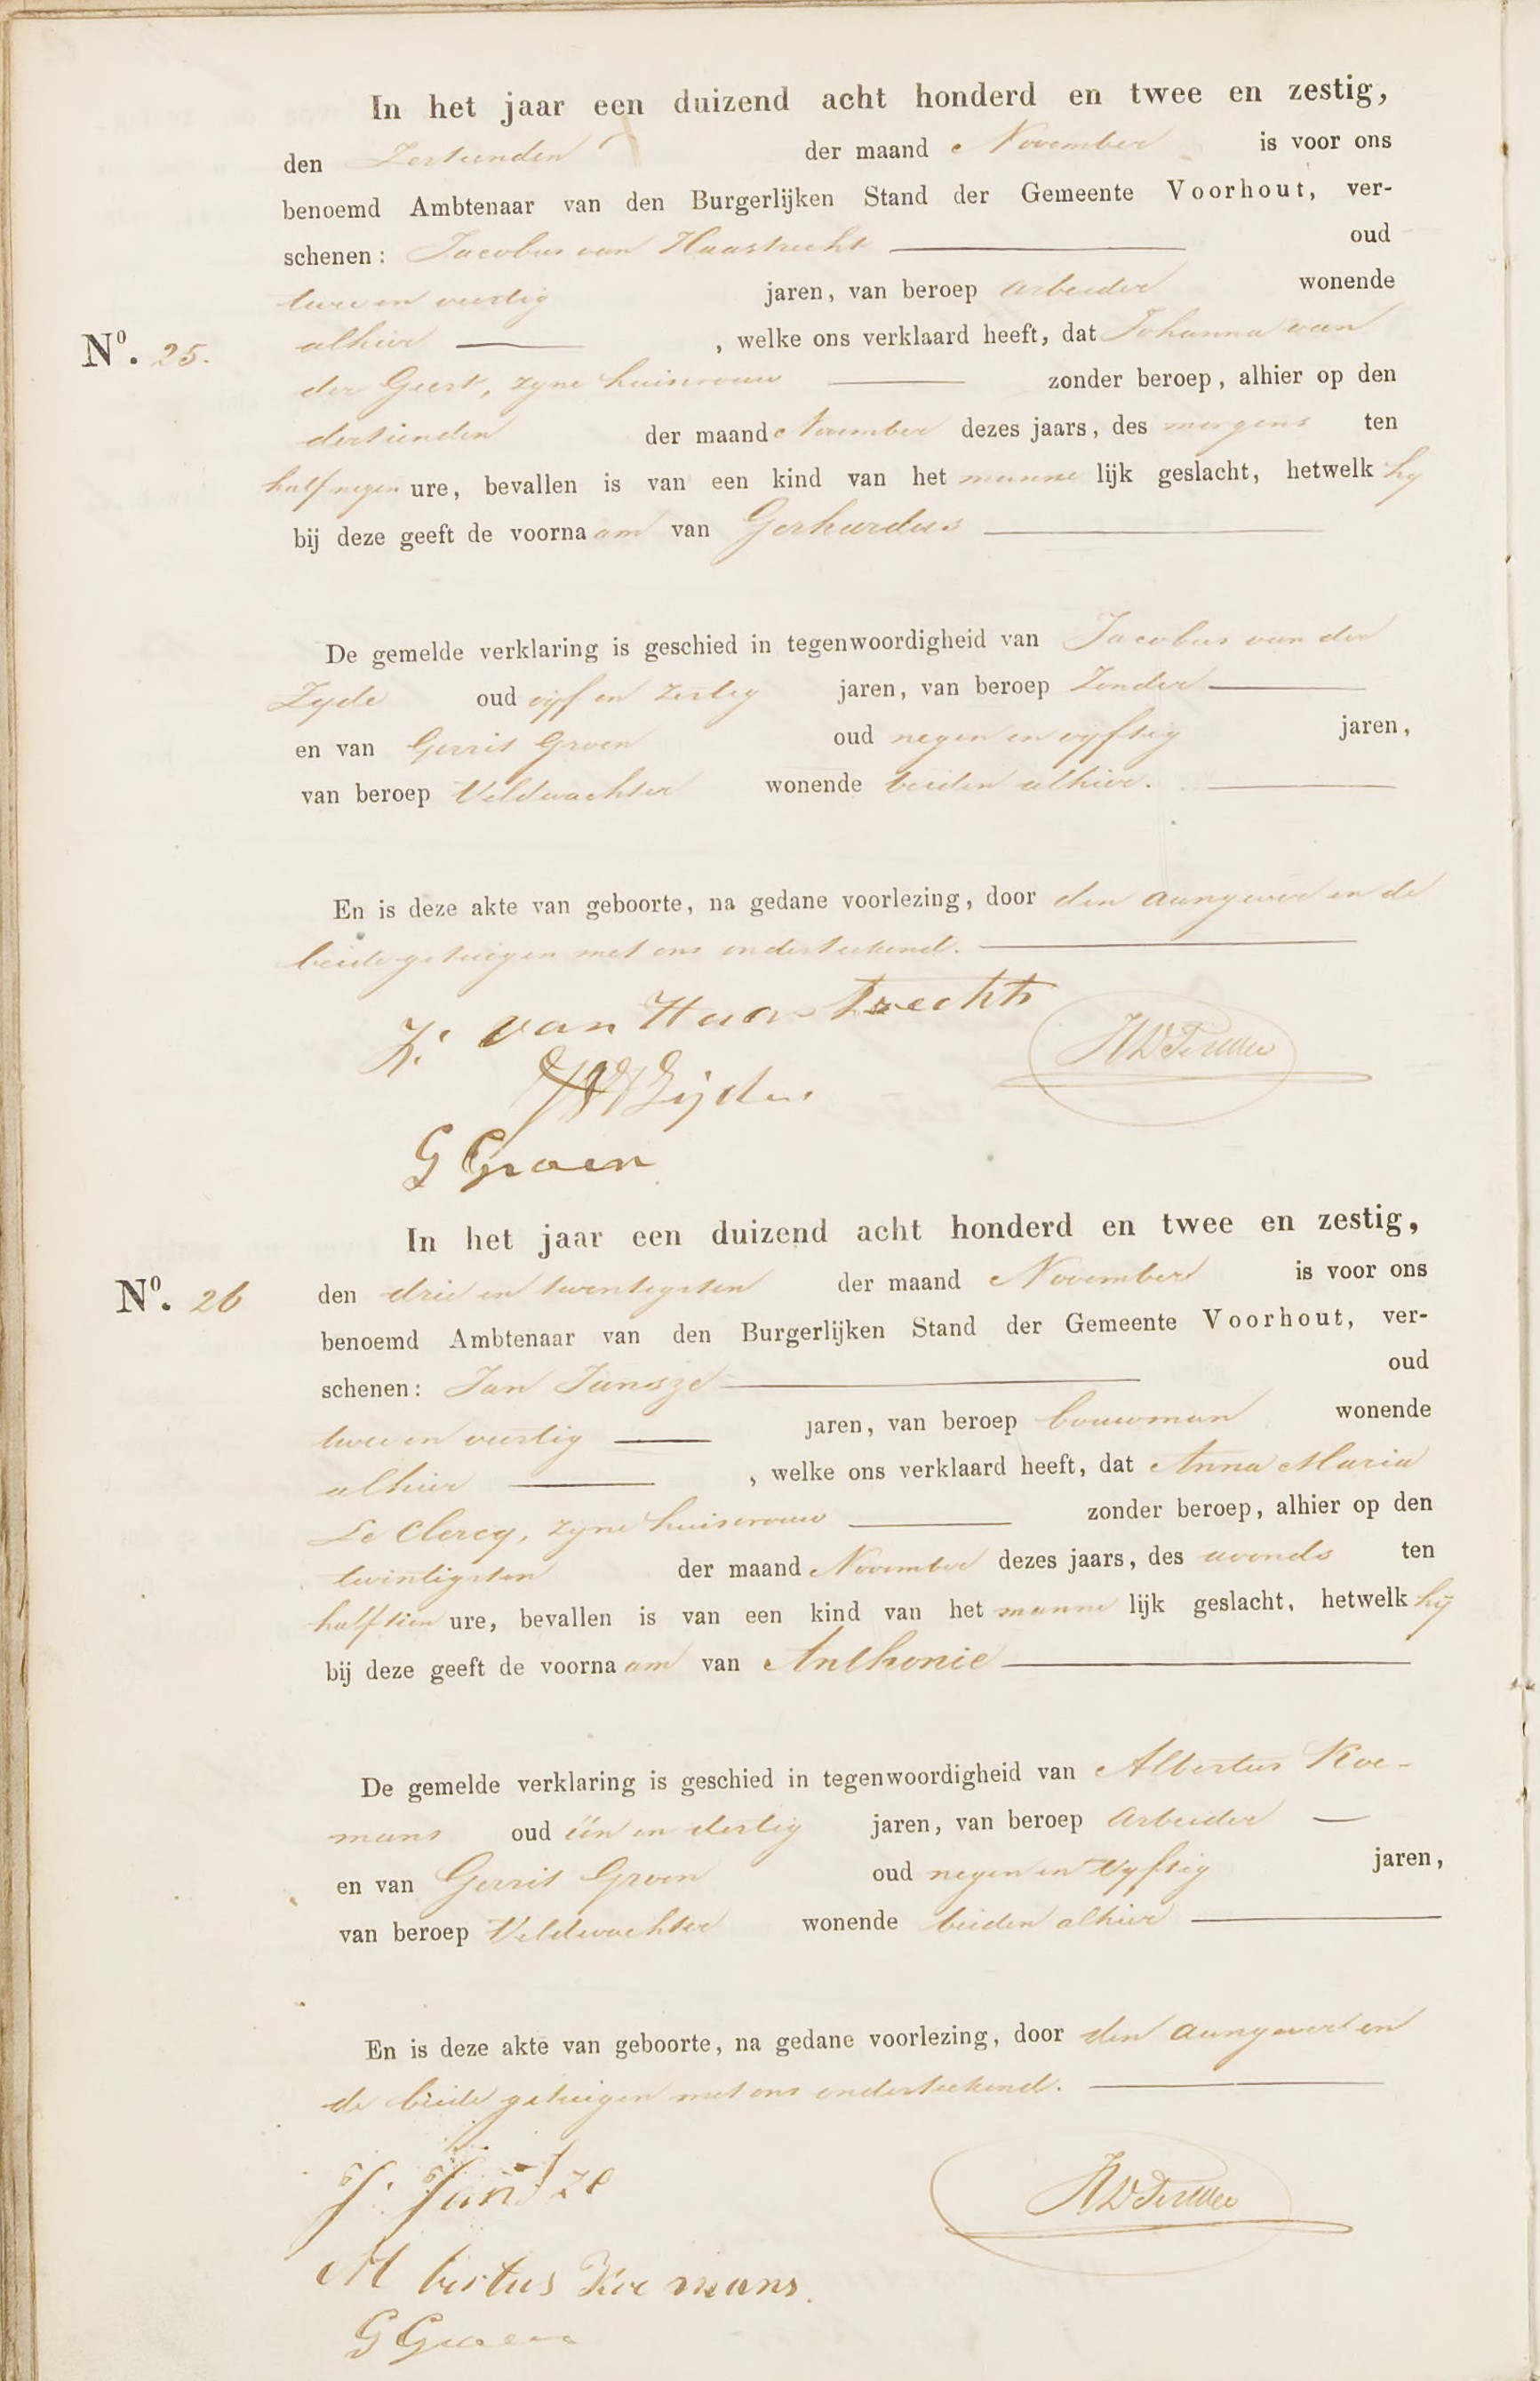 In het jaar een duizend acht honderd en twee en zestig,
den Zestienden der maand November is voor ons
benoemd Ambtenaar van den Burgerlijken Stand der Gemeente Voorhout, ver-
schenen: Jacobus van Haastrecht oud
twee en veertig jaren, van beroep arbeider wonende
No. 25. alhier , welke ons verklaard heeft, dat Johanna van
der Geest, zyne huisvrouw zonder beroep, alhier op den
dertienden der maand November dezes jaars, des morgens ten
half negen ure, bevallen is van een kind van het manne lijk geslacht, hetwelk hy
bij deze geeft de voorna am van Gerhardus
De gemelde verklaring is geschied in tegenwoordigheid van Jacobus van der
Zyde oud vyf en zestig jaren, van beroep Zonder
en van Gerrit Groen oud negen en vyftig jaren,
van beroep Veldwachter wonende beiden alhier.
En is deze akte van geboorte, na gedane voorlezing, door den aangever en de
beide getuigen met ons onderteekend.
van Haastrecht
Zijden
G Groen
In het jaar een duizend acht honderd en twee en zestig,
No. 26 den drie en twintigsten der maand November is voor ons
benoemd Ambtenaar van den Burgerlijken Stand der Gemeente Voorhout, ver-
schenen: Jan Janszé oud
twee en veertig jaren, van beroep bouwman wonende
alhier , welke ons verklaard heeft, dat Anna Maria
Le Clercq, zyne huisvrouw zonder beroep, alhier op den
twintigsten der maand November dezes jaars, des avonds ten
half tien ure, bevallen is van een kind van het manne lijk geslacht, hetwelk hij
bij deze geeft de voorna am van Anthonie
De gemelde verklaring is geschied in tegenwoordigheid van Albertus Koe-
mans oud één en dertig jaren, van beroep arbeider
en van Gerrit Groen oud negen en vyftig jaren,
van beroep Veldwachter wonende beiden alhier
En is deze akte van geboorte, na gedane voorlezing, door den aangever en
de beide getuigen met ons onderteekend.
J. Janszé
Albertus Koemans.
G Groen